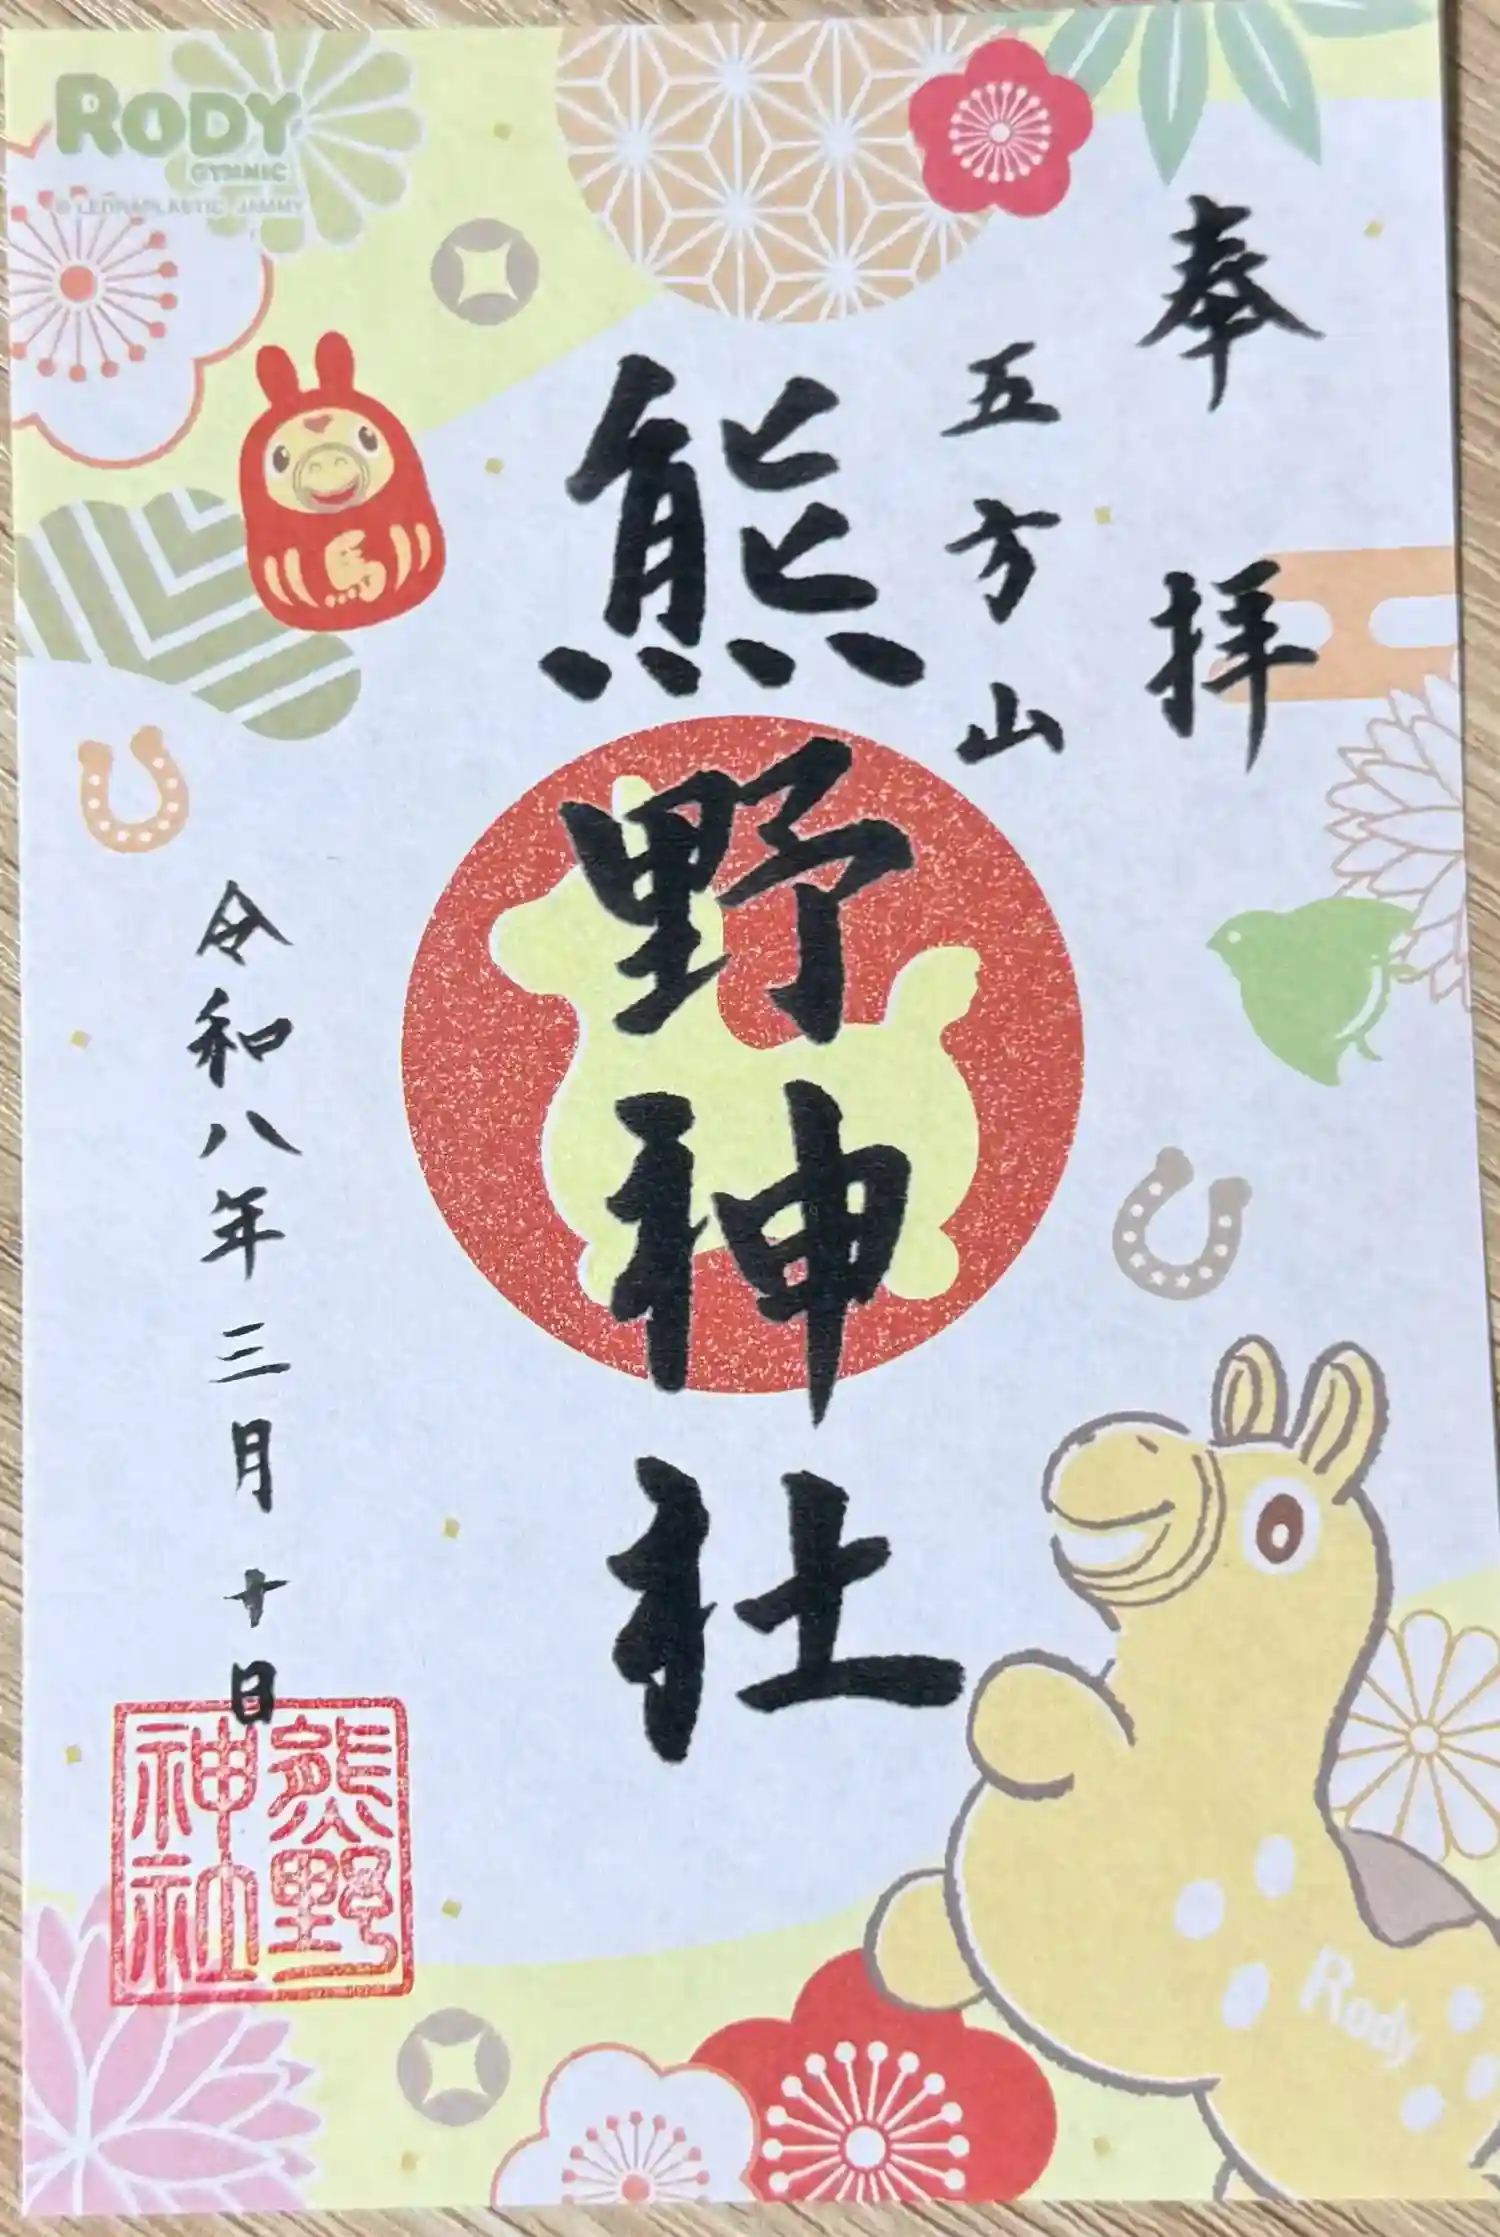 RODY
GYMNIC
© LEDRAPLASTIC JAMMY
奉拝
五方山
熊野神社
令和八年三月十日
熊野
神社
馬
Rody